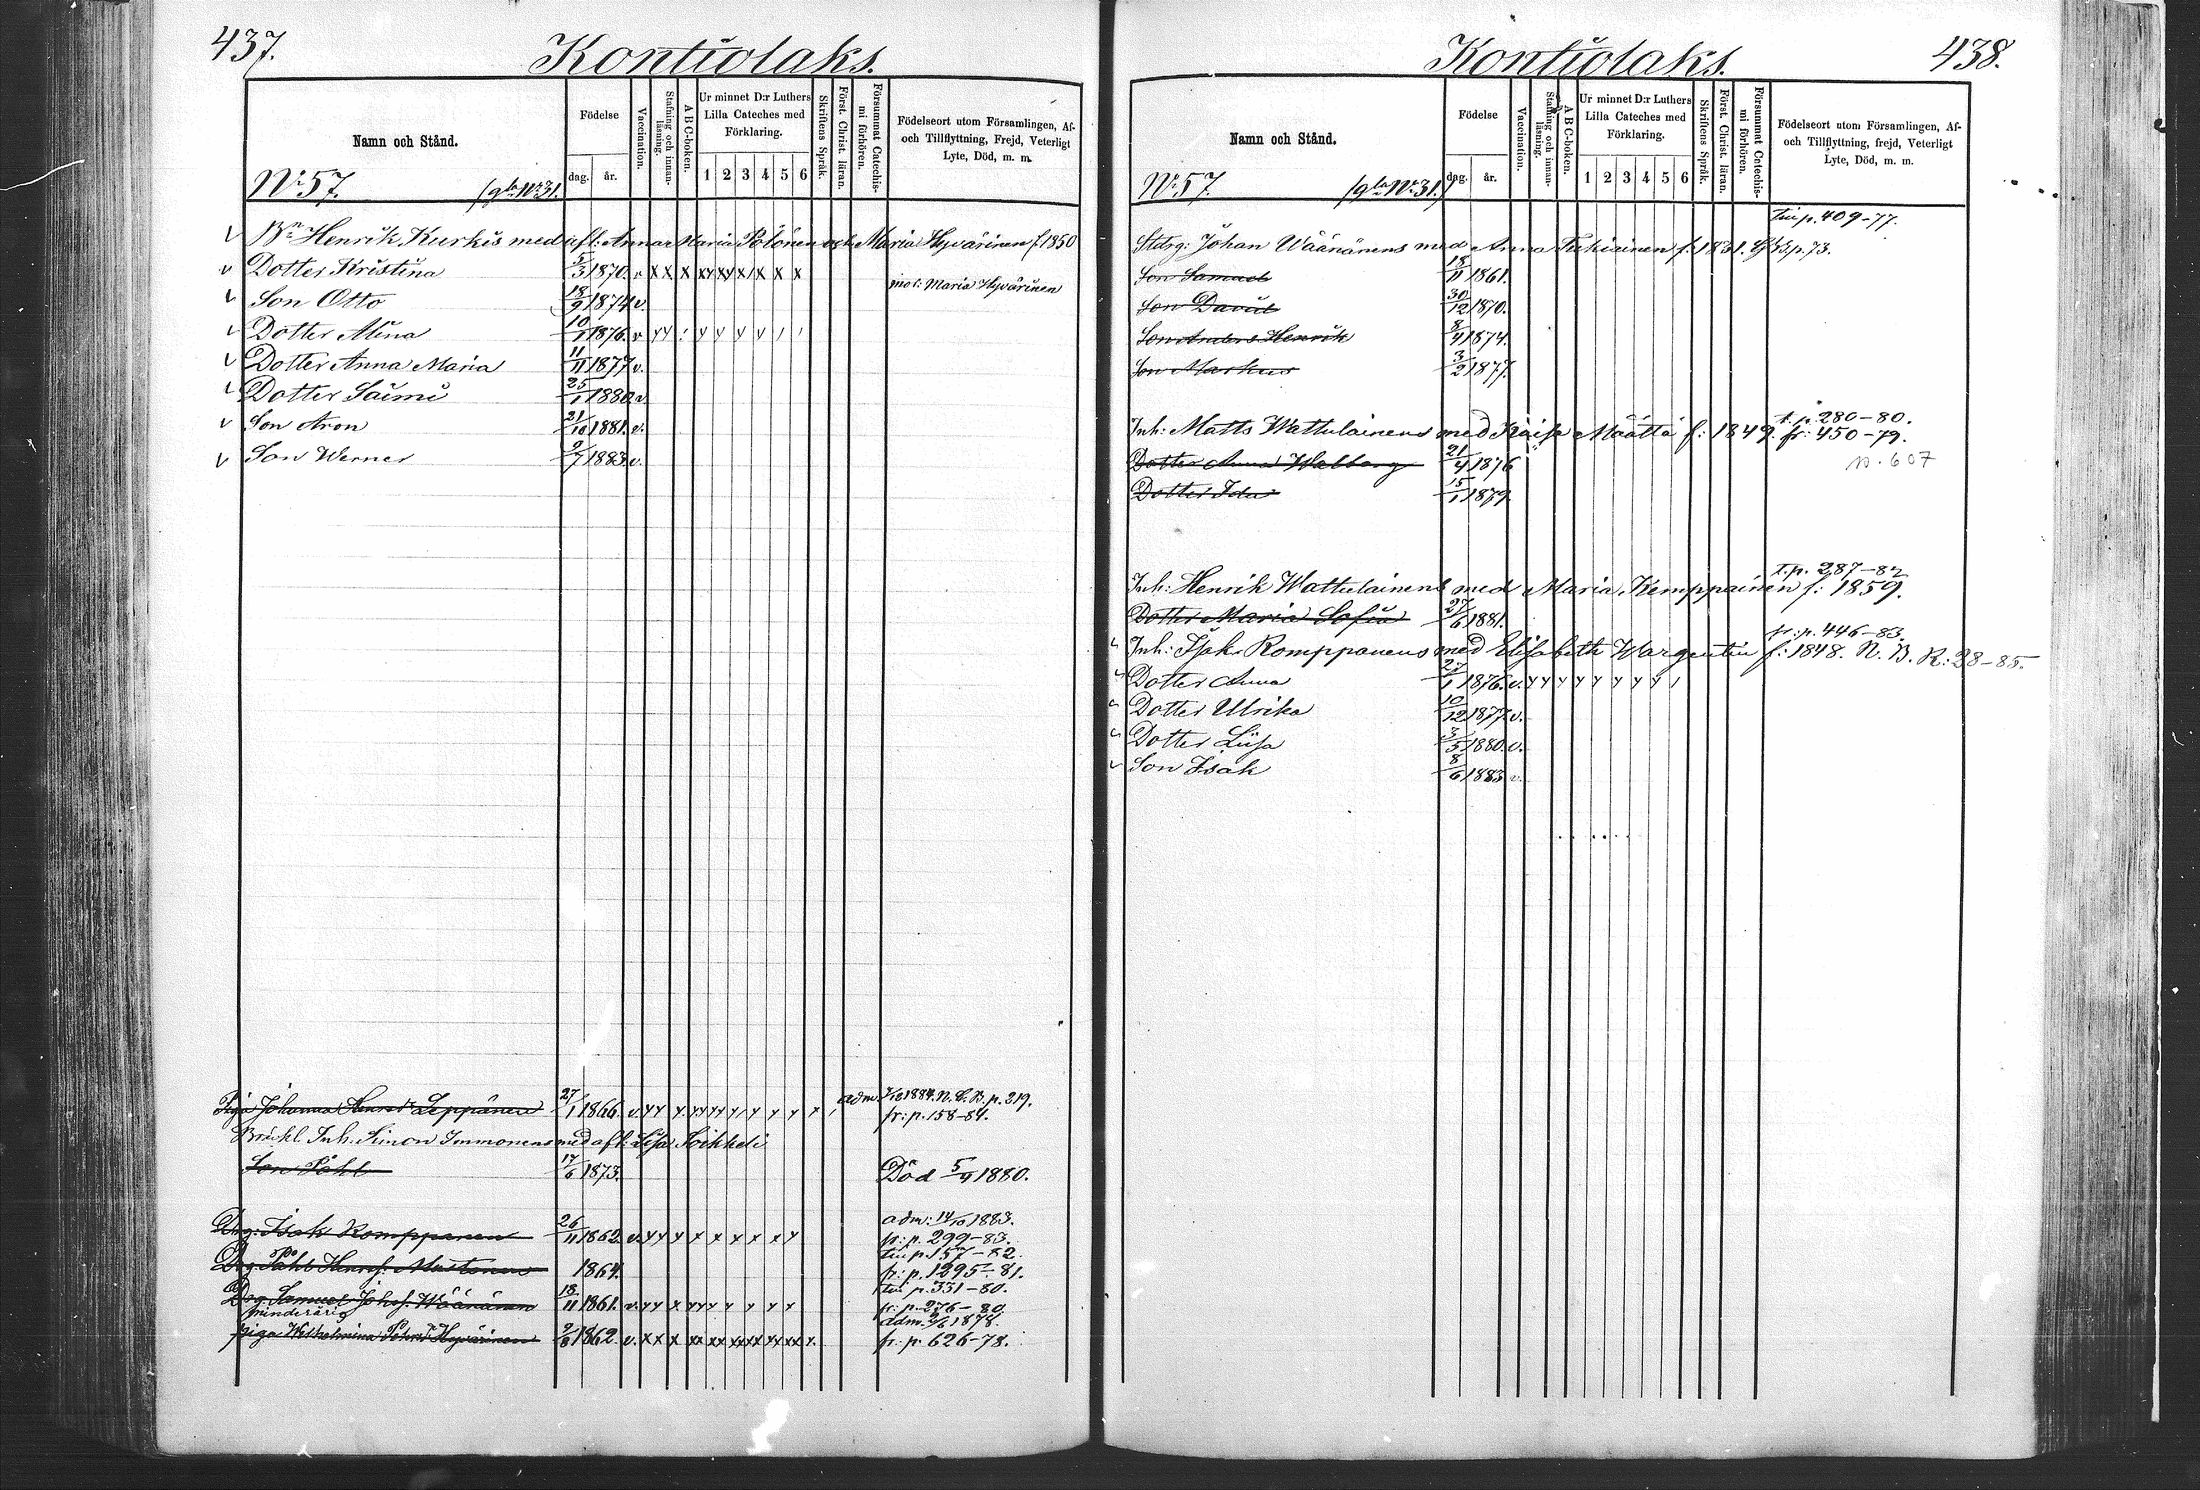 437.
Kontiolaks.
Namn och Stånd.
Födelse
dag. år.
Vaccination.
Stafning och innanläsning.
A B C-boken.
Ur minnet D:r Luthers Lilla Cateches med Förklaring.
1 2 3 4 5 6
Skriftens Språk.
Först. Christ. läran.
Försummat Catechismi förhören.
Födelseort utom Församlingen, Af- och Tillflyttning, Frejd, Veterligt Lyte, Död, m. m.
No 57. (gla No 31.
v Bn Henrik Kurkis med afl: Anna Maria Polönen och Maria Hyvärinen f. 1850
v Dotter Kristina 5/3 1870. v x x x xy xy x x x x
mot: Maria Hyvärinen
v Son Otto 18/9 1874 v.
v Dotter Alina 10/1 1876. v y y
v Dotter Anna Maria 11/11 1877 v.
v Dotter Saimi 25/1 1880 v.
v Son Aron 21/10 1881. v.
v Son Werner 9/7 1883 v.
Piga Johanna Henrsdr Leppänen 27/1 1866. v. adm. 1884. N. C. B. p. 219.
fr: p. 158-84.
Inh: Simon Immonens med afl: Lisa Soikkeli
Son Påhl 17/6 1873. Död 5/9 1880.
adm: 14/10 1883.
Drg: Isak Romppanen 26/11 1862. v. fr: p. 299-83.
till p. 157-82.
Drg. Påhl Henrsf: Mustonen 1864. fr: p. 1295-81.
till p. 331-80.
Drg. Samuel Johsf. Wäänänen 18/11 1861. v. fr: p. 276-80.
minderårig adm. 1878.
piga Wilhelmina Påhlsdr Hyvärinen 2/8 1862. v. fr: p. 626-78.
438.
Kontiolaks.
Namn och Stånd.
Födelse
dag. år.
Vaccination.
Stafning och innanläsning.
A B C-boken.
Ur minnet D:r Luthers Lilla Cateches med Förklaring.
1 2 3 4 5 6
Skriftens Språk.
Först. Christ. läran.
Försummat Catechismi förhören.
Födelseort utom Församlingen, Af- och Tillflyttning, frejd, Veterligt Lyte, Död, m. m.
No 57. (gla No 31.)
till p. 409-77.
Stdrg: Johan Wäänänens med Anna Turkiainen f: 1831. p. 73.
Son Samuel 18/11 1861.
Son David 30/12 1870.
Son Anders Henrik 8/4 1874.
Son Markus 3/2 1877.
t. p. 280-80.
Inh: Matts Wattulainens med Kaisa Määttä f: 1849. fr: 450-79.
Dotter Anna Walborg 21/4 1876 p. 607
Dotter Ida 15/1 1879
t. p. 287-82
Inh: Henrik Wattulainens med Maria Kemppainen f: 1859.
Dotter Maria Sofia 27/6 1881.
fr: p. 446-83.
v Inh: Isak Romppanens med Elisabeth Wargentin f: 1848. N. B. R: 28-85.
v Dotter Anna 27/1 1876. v. y y y y y y y y
v Dotter Ulrika 10/12 1877 v.
v Dotter Liisa 3/5 1880. v.
v Son Isak 8/6 1883 v.